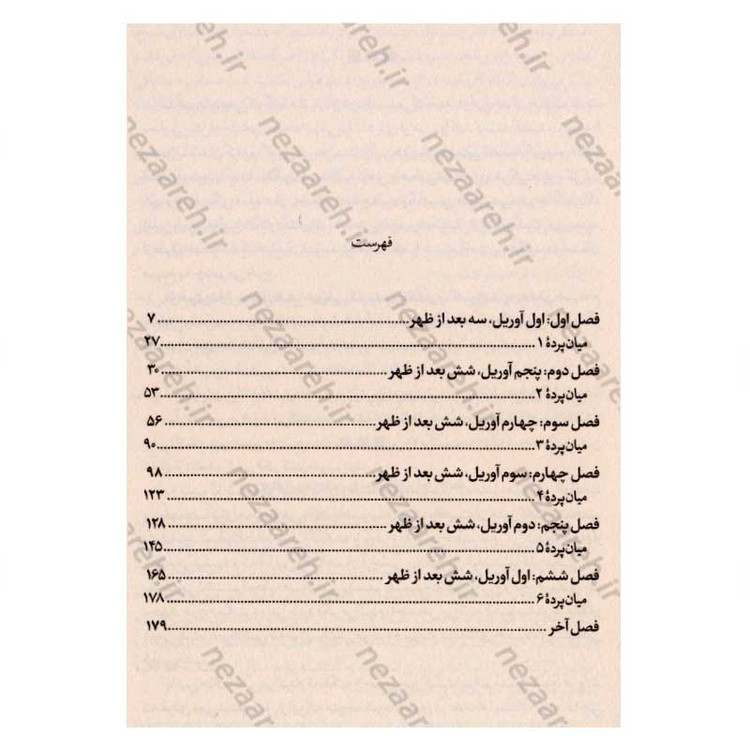 فهرست
فصل اول: اول آوریل، سه بعد از ظهر ........ ۷
میان‌پردهٔ ۱ ........ ۲۷
فصل دوم: پنجم آوریل، شش بعد از ظهر ........ ۳۰
میان‌پردهٔ ۲ ........ ۵۳
فصل سوم: چهارم آوریل، شش بعد از ظهر ........ ۵۶
میان‌پردهٔ ۳ ........ ۹۰
فصل چهارم: سوم آوریل، شش بعد از ظهر ........ ۹۸
میان‌پردهٔ ۴ ........ ۱۲۳
فصل پنجم: دوم آوریل، شش بعد از ظهر ........ ۱۲۸
میان‌پردهٔ ۵ ........ ۱۴۵
فصل ششم: اول آوریل، شش بعد از ظهر ........ ۱۶۵
میان‌پردهٔ ۶ ........ ۱۷۸
فصل آخر ........ ۱۷۹
nezaareh.ir